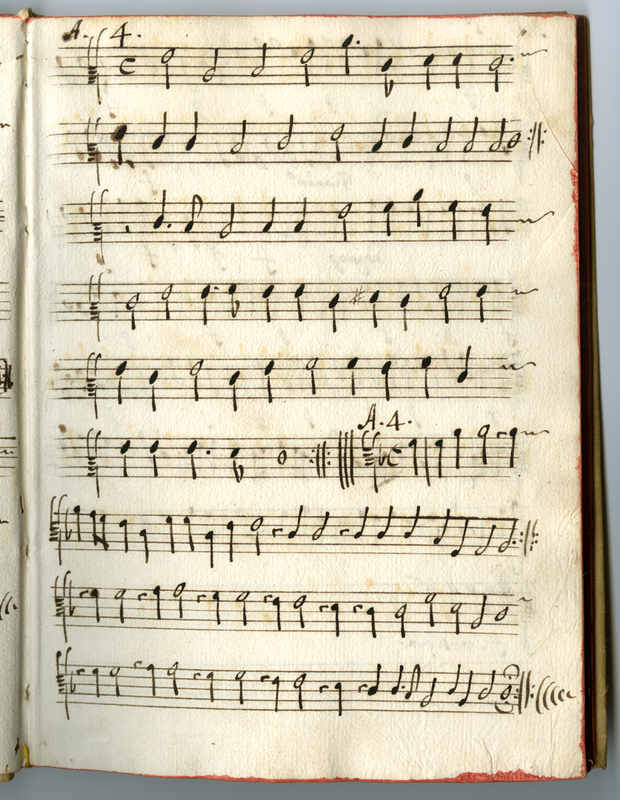 A. 4.
A. 4.